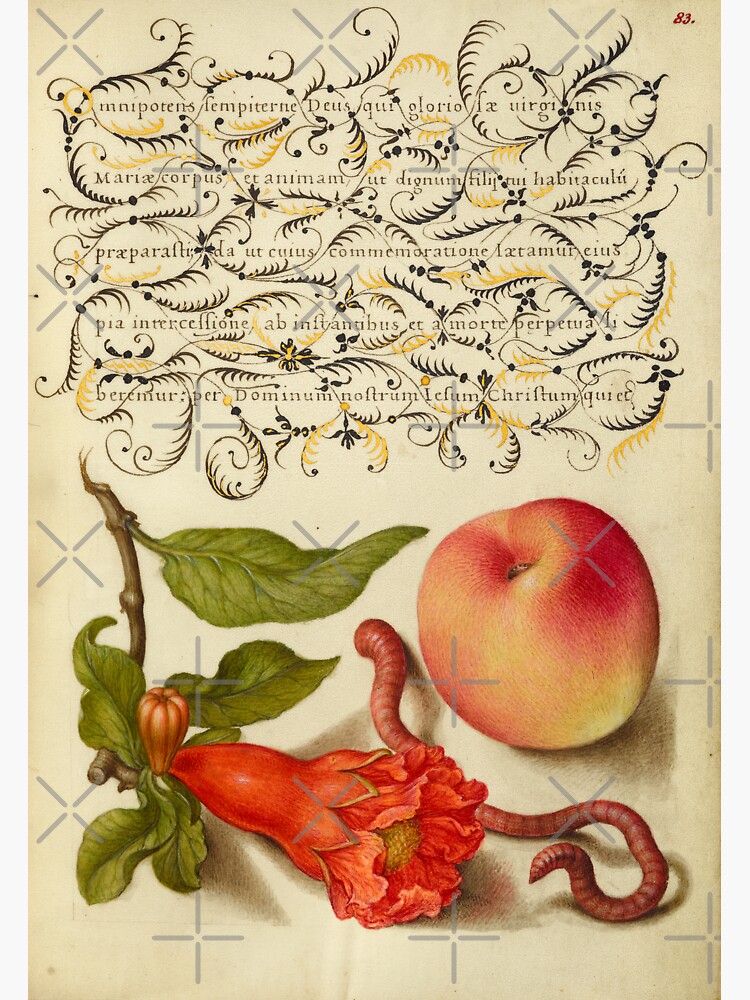 83.
Omnipotens sempiterne Deus qui glorio sæ virginis
Mariæ corpus et animam, ut dignum filij tui habitaculū
præparasti; da ut cuius commemoratione lætamur, eius
pia intercessione ab instantibus et a morte perpetua li
beremur: per Dominum nostrum Iesum Christum qui etc